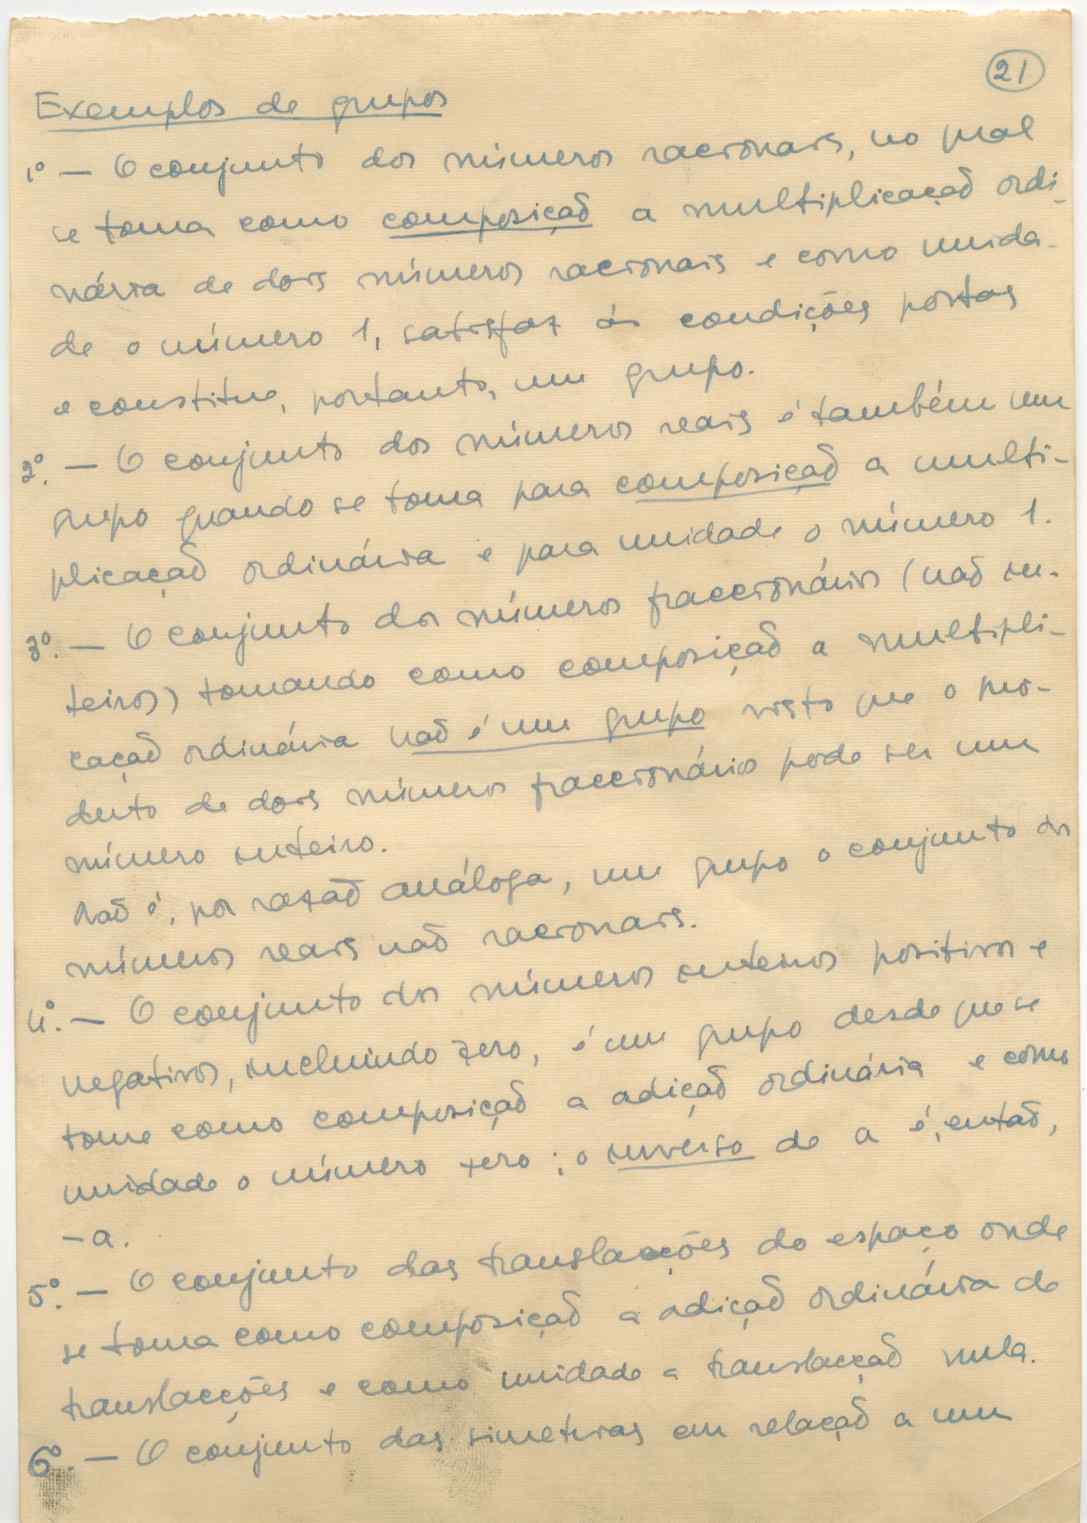 21
Exemplos de grupos
1º — O conjunto dos números racionais, no qual
se toma como composição a multiplicação ordi-
nária de dois números racionais e como unida-
de o número 1, satisfaz às condições postas
e constitue, portanto, um grupo.
2º. — O conjunto dos números reais é também um
grupo quando se toma para composição a multi-
plicação ordinária e para unidade o número 1.
3º. — O conjunto dos números fraccionários (não in-
teiros) tomando como composição a multipli-
cação ordinária não é um grupo visto que o pro-
duto de dois números fraccionários pode ser um
número inteiro.
Não é, por razão análoga, um grupo o conjunto dos
números reais não racionais.
4º. — O conjunto dos números inteiros positivos e
negativos, incluindo zero, é um grupo desde que se
tome como composição a adição ordinária e como
unidade o número zero; o inverso de a é, então,
-a.
5º. — O conjunto das translacções do espaço onde
se toma como composição a adição ordinária de
translacções e como unidade a translacção nula.
6º. — O conjunto das simetrias em relação a um